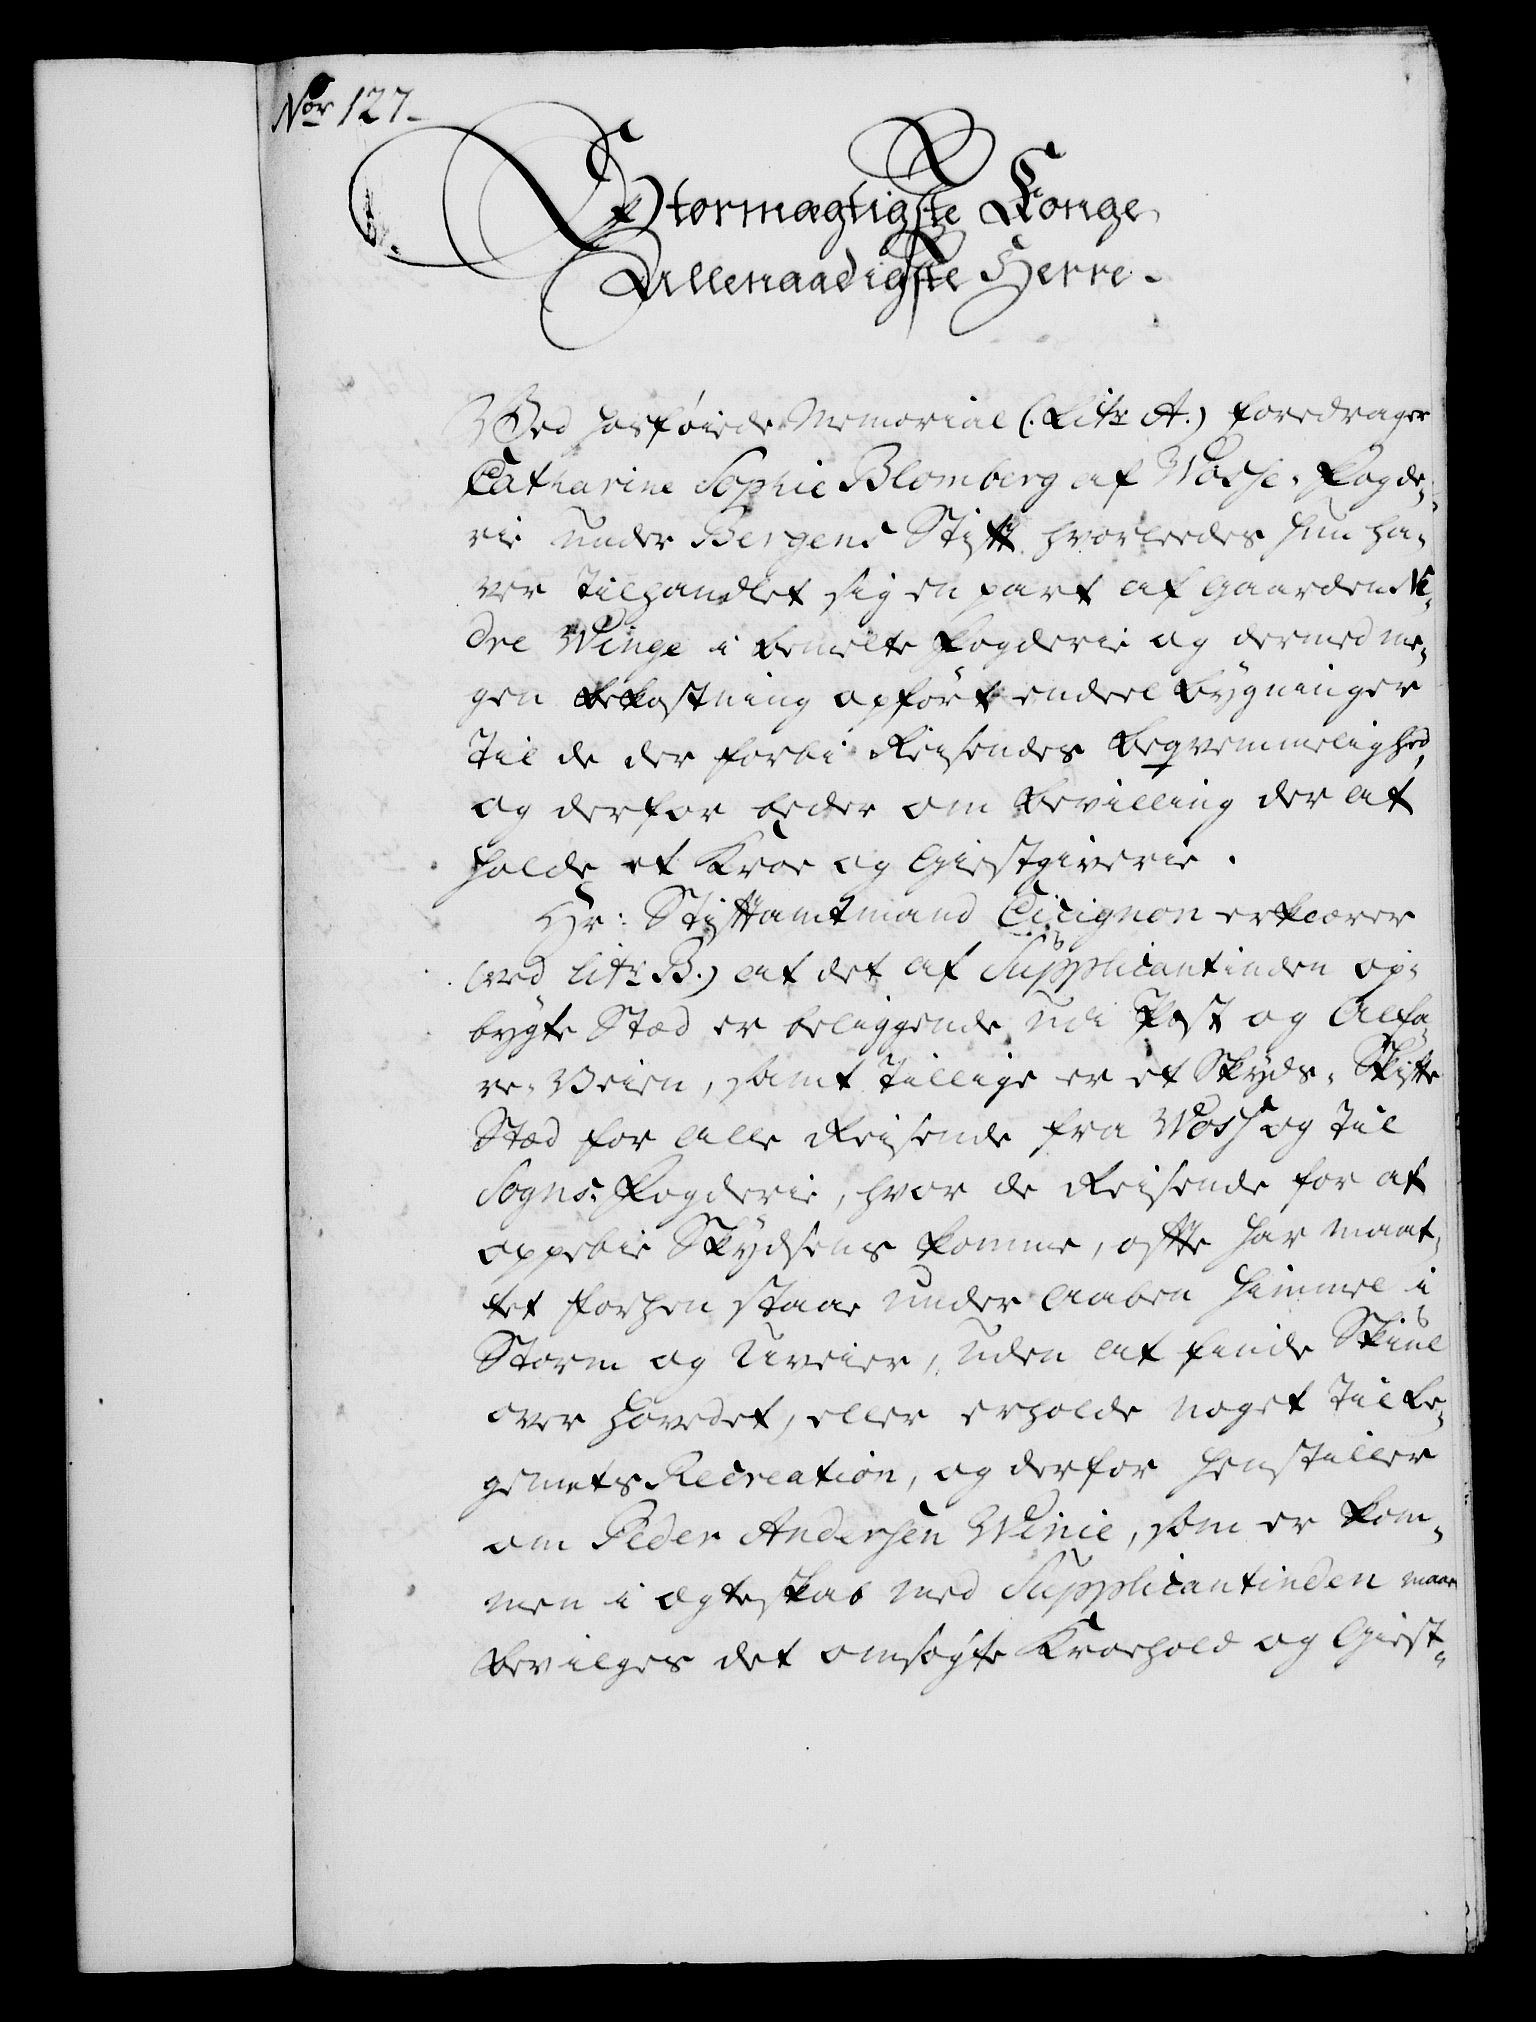 Nor 127.
Stormægtigste Konge,
Allernaadigste Herre.
Ved hosføiede Memorial (: Litr A.) foredrager
Catharine Sophie Blomberg af Vosse-Fogde-
rie under Bergens Stift hvorleedes hun ha-
ver tilhandlet sig en part af Gaarden Ne-
dre Winge i bemelte Fogderie og der med me-
gen Bekostning opført endeel Bygninger
til de der forbi Reisendes Beqvemmelighed,
og derfor beder om Bevilling der at
holde et Kroe og Giestgiverie.
Hr: Stiftamtmand Cicignon erklærer
(ved Litr B.) at det af Supplicantinden op-
bygte Stæd er beliggende udi Post og Alfa-
re-Veien, samt tillige er et Skyds-Skifte
Stæd for alle Reisende fra Voss og til
Sogns-Fogderie, hvor de Reisende for at
oppebie Skydsens komme, ofte har maat-
tet forhen staae under aaben Himmel i
Storm og Uveier, uden at finde Skiul
over Hovedet, eller erholde noget til Le-
gemets Recreation, og derfor henstiller
om Peder Andersen Winie, som er kom-
men i Ægteskab med Supplicantinden maae
bevilges det omsøgte Kroehold og Giest-